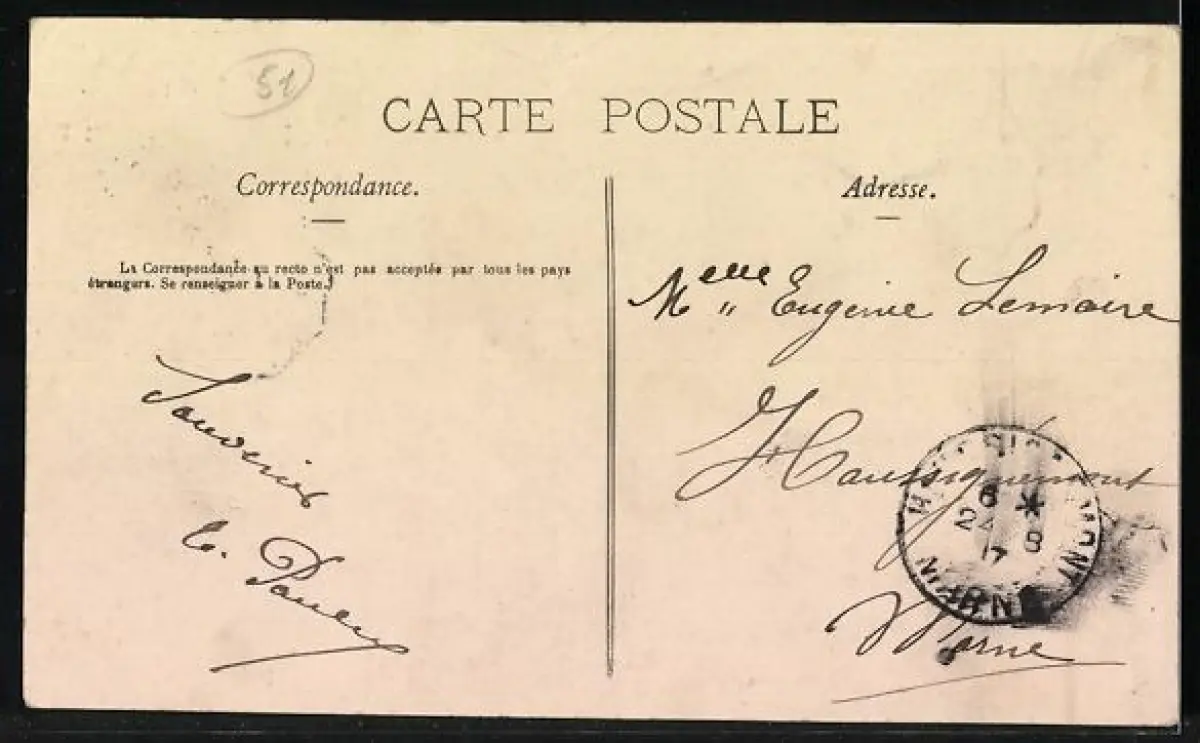 51
CARTE POSTALE
Correspondance.
Adresse.
La Correspondance au recto n'est pas acceptée par tous les pays
étrangers. Se renseigner à la Poste.)
Melle Eugénie Lemaire
Haussignémont
Marne
Souvenir
6 *
24 8
17
MARNE